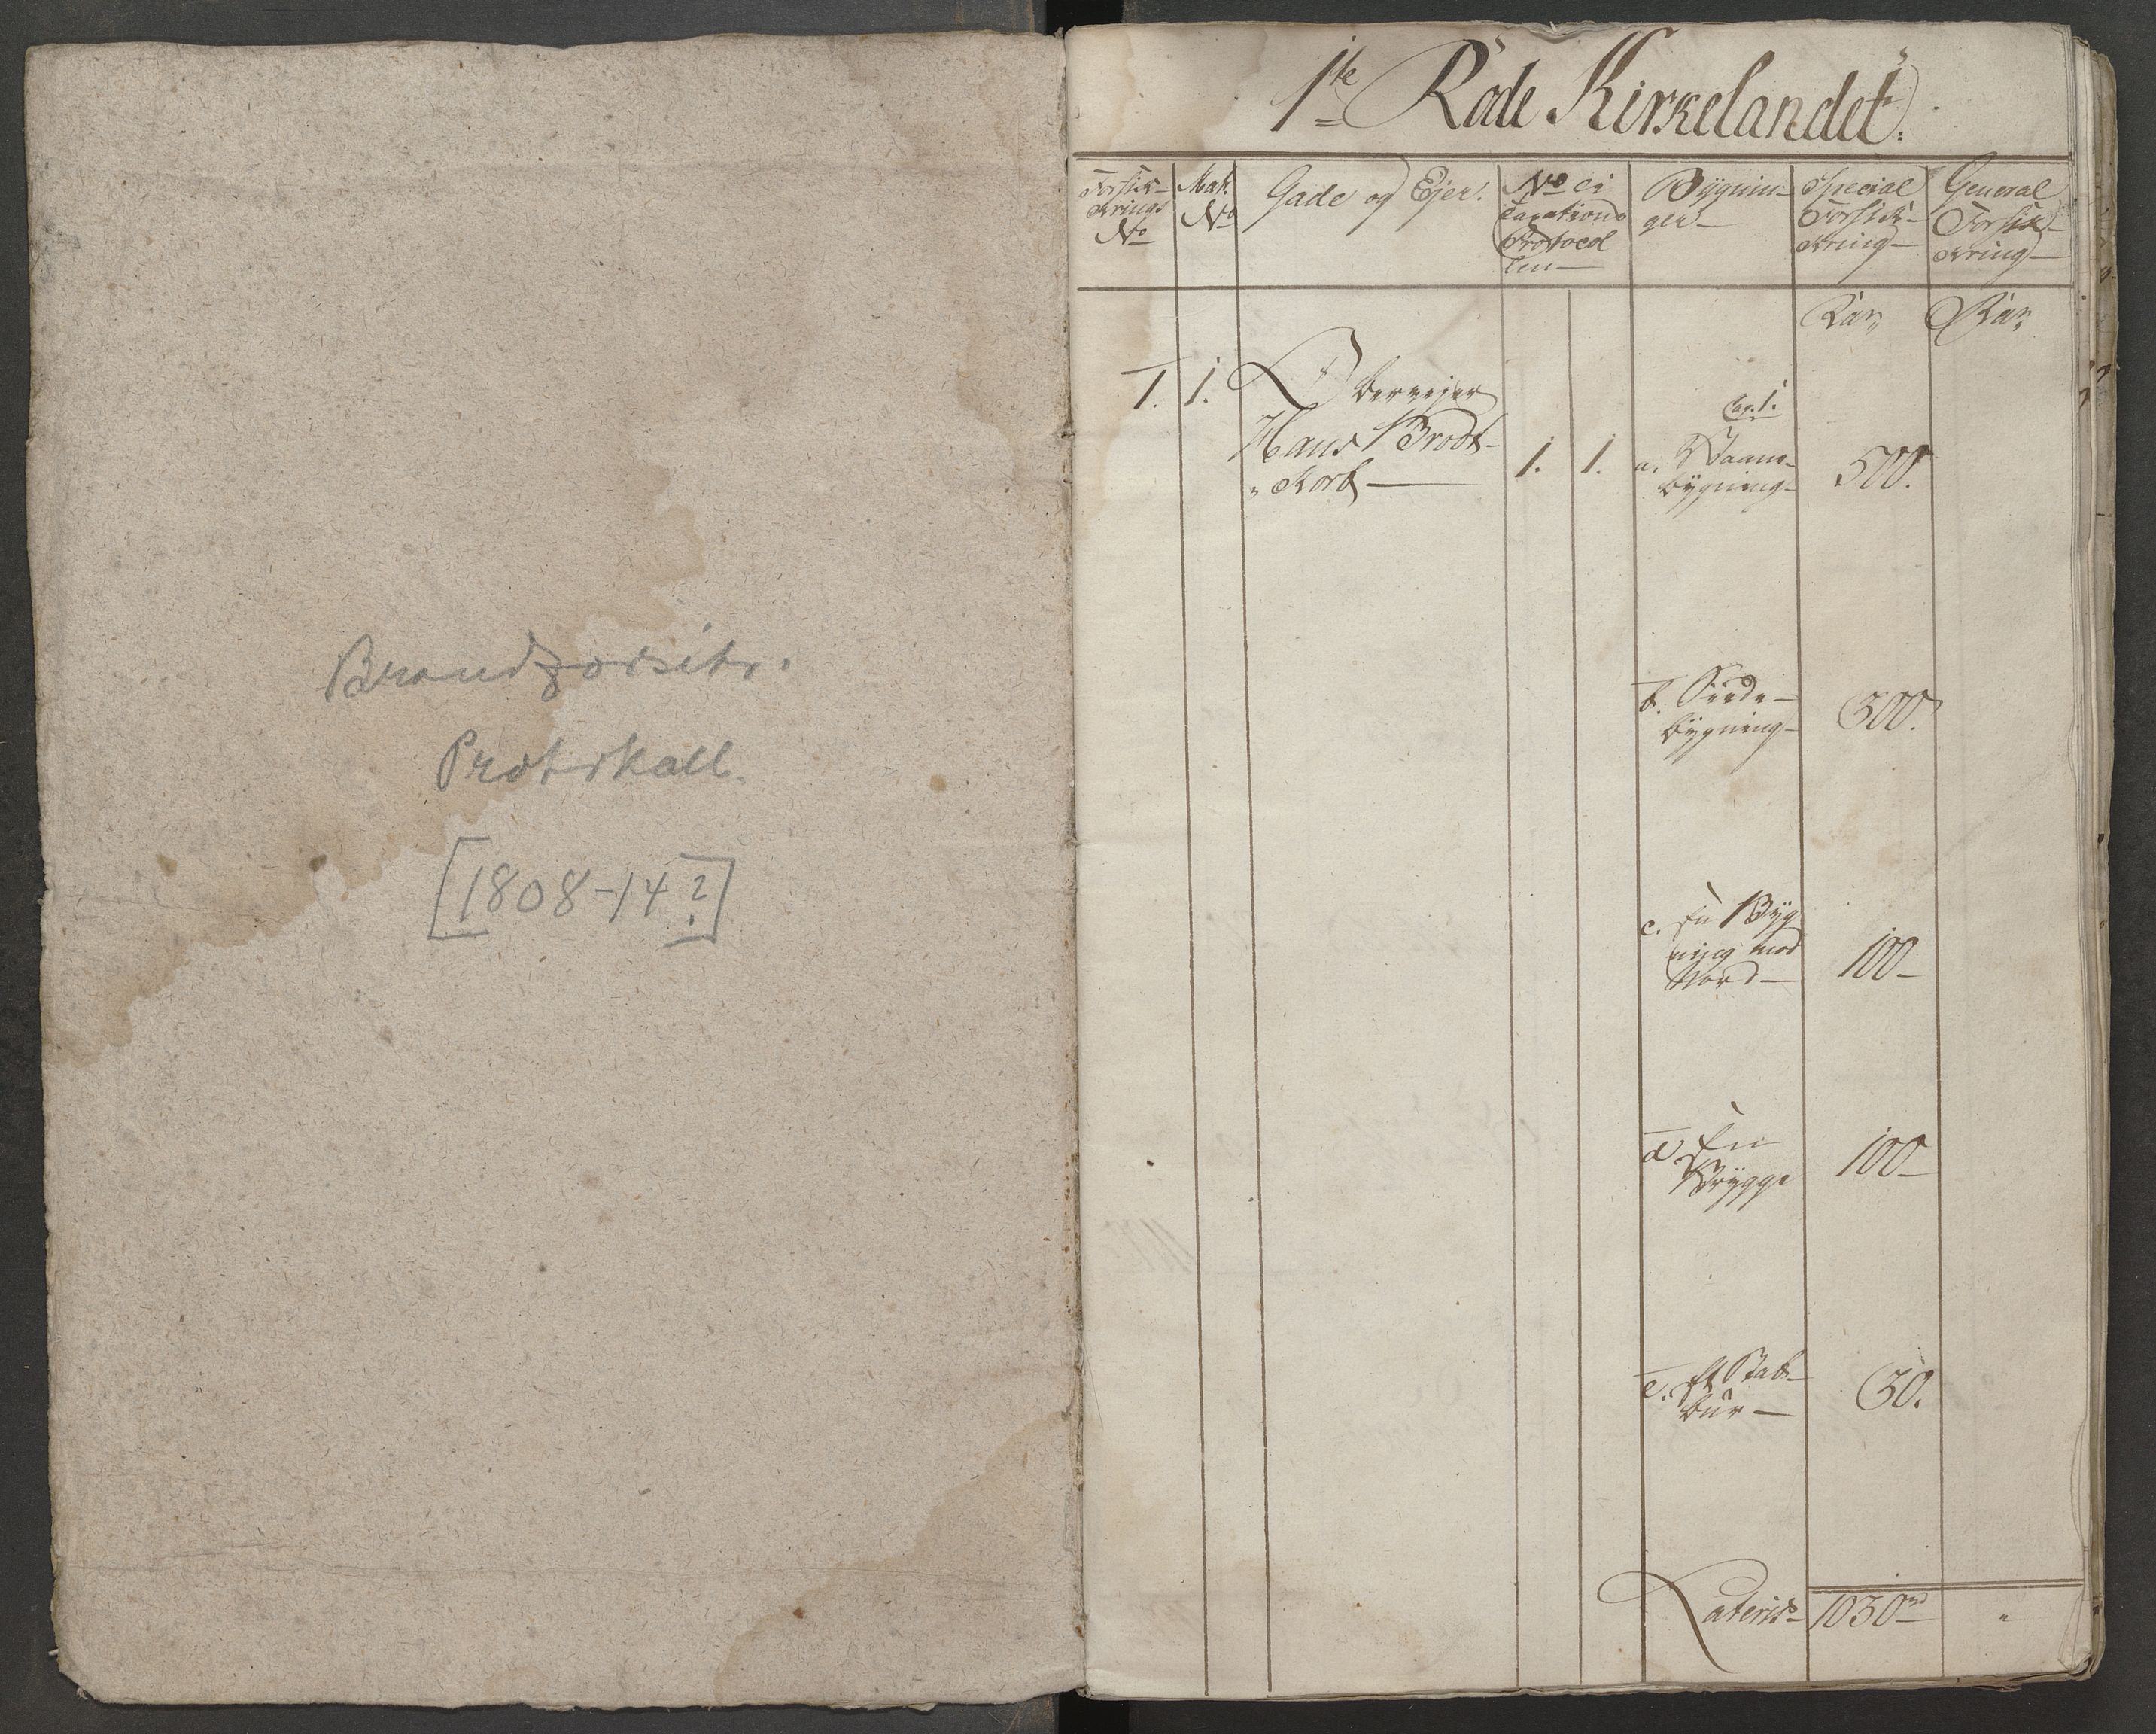 Brandforsikr.
Protokoll.
[1808-14?]
1te Rode Kirkelandet.
Forsik-
krings
No
Mat.
No
Gade og Ejer.
No i
Taxations
Protocol
len
Bÿgnin-
ger
Special
Forsik-
kring
General
Forsik-
kring
1. 1.
Hans Brodt-
korb
1. 1.
Cap. 1.
a. Vaane-
bÿgning
500.
b. Siide-
bÿgning
300.
c. En Bÿg
ning mod
Nord
100
d. En
Brÿgge
100
e. Et Stab-
bur
30.
Lateris 1030 "